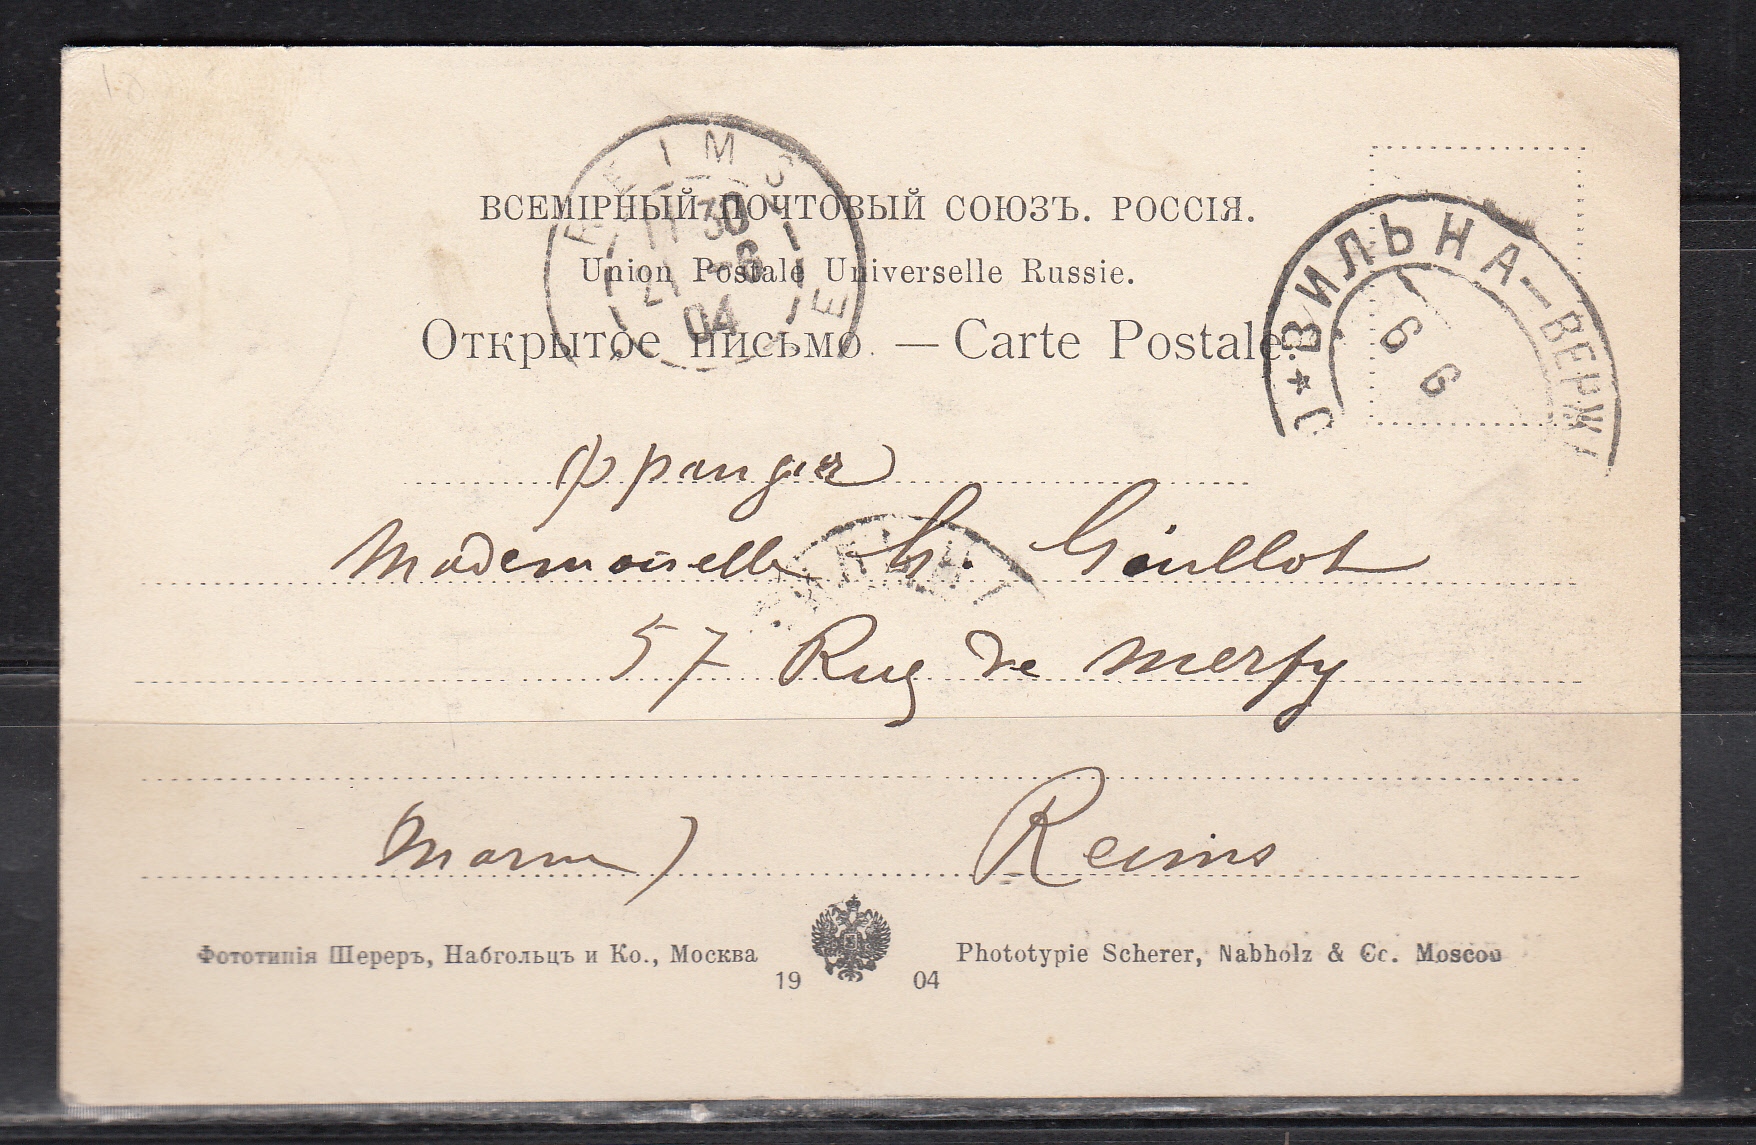 ВСЕМІРНЫЙ ПОЧТОВЫЙ СОЮЗЪ. РОССІЯ.
Union Postale Universelle Russie.
Открытое письмо. — Carte Postale.
REIMS
11 30
21 -6
04
ВИЛЬНА—ВЕРЖ
6 6
Франція
Mademoiselle G. Guillot
57 Rue de Merfy
Marne) Reims
Фототипія Шереръ, Набгольцъ и Ко., Москва
19 04
Phototypie Scherer, Nabholz & Co. Moscou